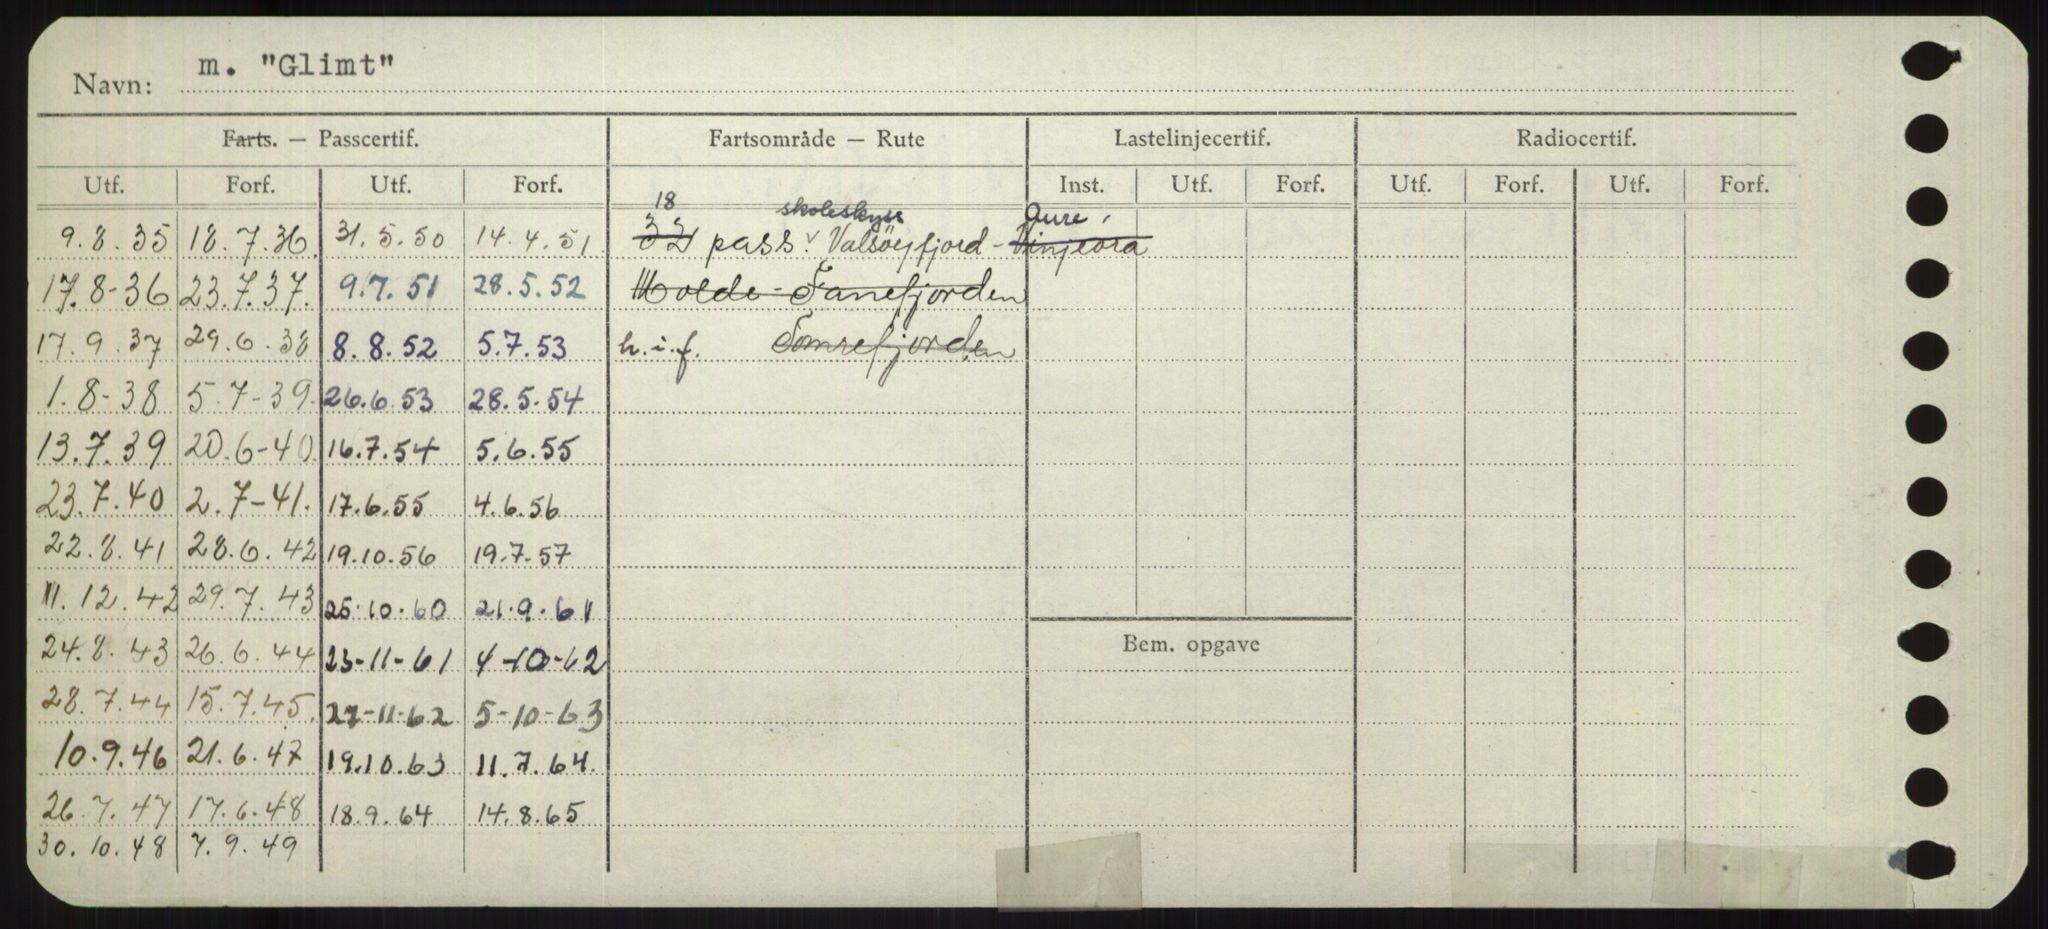 Navn: m. "Glimt"
Farts. — Passcertif. Fartsområde — Rute Lastelinjecertif. Radiocertif.
Utf. Forf. Utf. Forf. Inst. Utf. Forf. Utf. Forf. Utf. Forf.
18 skoleskyss Aure
9.8.35 18.7.36. 31.5.50 14.4.51. 32 pass. Valsöyfjord - Vinjeöra
17.8-36 23.7.37. 9.7.51 28.5.52 Molde - Fanefjorden
17.9.37 29.6.38 8.8.52 5.7.53 h.i.f. Tomrefjorden
1.8-38 5.7-39. 26.6.53 28.5.54
13.7.39 20.6-40. 16.7.54 5.6.55
23.7.40 2.7-41. 17.6.55 4.6.56
22.8.41 28.6.42 19.10.56 19.7.57
11.12.42 29.7.43 25.10.60 21.9.61
24.8.43 26.6.44 23-11-61 4-10-62
Bem. opgave
28.7.44 15.7.45. 27-11-62 5-10-63
10.9.46 21.6.47 19.10.63 11.7.64.
26.7.47 17.6.48 18.9.64 14.8.65
30.10.48 7.9.49